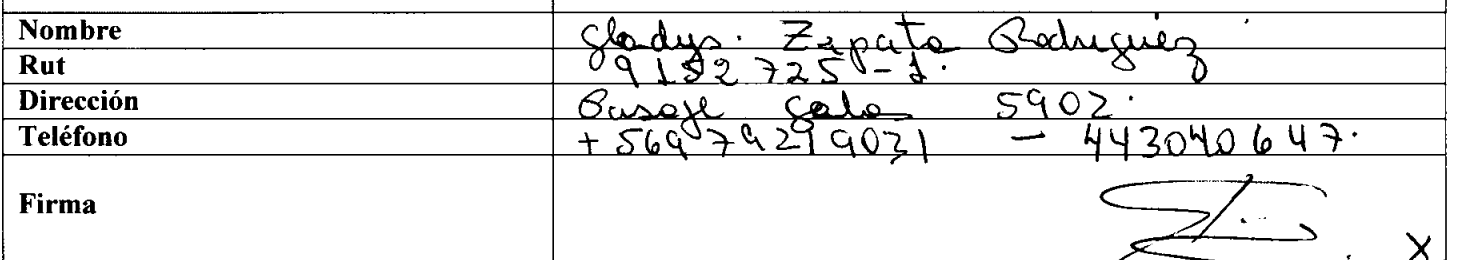 Nombre Gladys. Zapata Rodriguez
Rut 9152725-1.
Dirección Pasaje Gala 5902.
Teléfono +56979219031 - 443040647.
Firma X